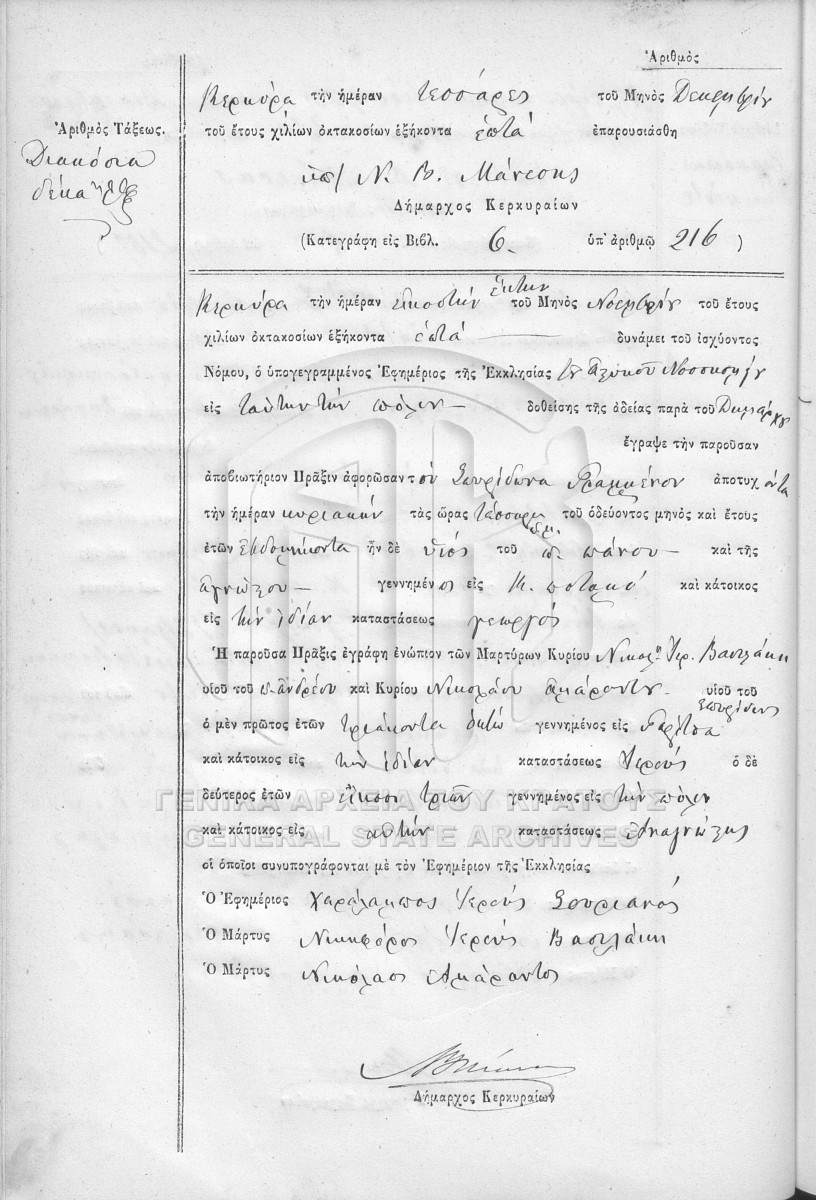 Ἀριθμὸς
Κερκύρα τὴν ἡμέραν τεσσάρες τοῦ Μηνὸς Δεκεμβρίου
Ἀριθμὸς Τάξεως.
τοῦ ἔτους χιλίων ὀκτακοσίων ἑξήκοντα ἑπτά ἐπαρουσιάσθη
Διακόσια
δέκα
Ν. Β. Μάνεσης
Δήμαρχος Κερκυραίων
(Κατεγράφη εἰς Βιβλ. 6. ὑπ' ἀριθμῷ 216)
Κερκύρα τὴν ἡμέραν εἰκοστὴν ἕκτην τοῦ Μηνὸς Νοεμβρίου τοῦ ἔτους
χιλίων ὀκτακοσίων ἑξήκοντα ἑπτά δυνάμει τοῦ ἰσχύοντος
Νόμου, ὁ ὑπογεγραμμένος Ἐφημέριος τῆς Ἐκκλησίας
εἰς ταύτην τὴν πόλιν δοθείσης τῆς ἀδείας παρὰ τοῦ Δημάρχου
ἔγραψε τὴν παροῦσαν
ἀποβιωτήριον Πρᾶξιν ἀφορῶσαν τὸν Σπυρίδωνα Γραμμένον ἀποτυχόντα
τὴν ἡμέραν κυριακὴν τὰς ὥρας τέσσαρες τοῦ ὁδεύοντος μηνὸς καὶ ἔτους
ἐτῶν ἑβδομήκοντα ἦν δὲ υἱὸς τοῦ π. πάνου καὶ τῆς
ἀγνώστου γεννημένος εἰς Κ. ποταμό καὶ κάτοικος
εἰς τὴν ἰδίαν καταστάσεως γεωργός
Ἡ παροῦσα Πρᾶξις ἐγράφη ἐνώπιον τῶν Μαρτύρων Κυρίου Ἱερ. Βασιλάκη
υἱοῦ τοῦ π. Ἀνδρέου καὶ Κυρίου Νικολάου Ἀμάραντου υἱοῦ τοῦ Σπυρίδωνος
ὁ μὲν πρῶτος ἐτῶν τριάκοντα ὀκτώ γεννημένος εἰς Γαρίτσα
καὶ κάτοικος εἰς τὴν ἰδίαν καταστάσεως Ἱερεύς ὁ δὲ
δεύτερος ἐτῶν εἴκοσι τριῶν γεννημένος εἰς τὴν πόλιν
καὶ κάτοικος εἰς αὐτήν καταστάσεως Ἀναγνώστης
οἱ ὁποῖοι συνυπογράφονται μὲ τὸν Ἐφημέριον τῆς Ἐκκλησίας
Ὁ Ἐφημέριος Χαράλαμπος Ἱερεύς Σουριανός
Ὁ Μάρτυς Νικηφόρος Ἱερεύς Βασιλάκη
Ὁ Μάρτυς Νικόλαος Ἀμάραντος
Δήμαρχος Κερκυραίων
ΓΕΝΙΚΑ ΑΡΧΕΙΑ ΤΟΥ ΚΡΑΤΟΥΣ
GENERAL STATE ARCHIVES